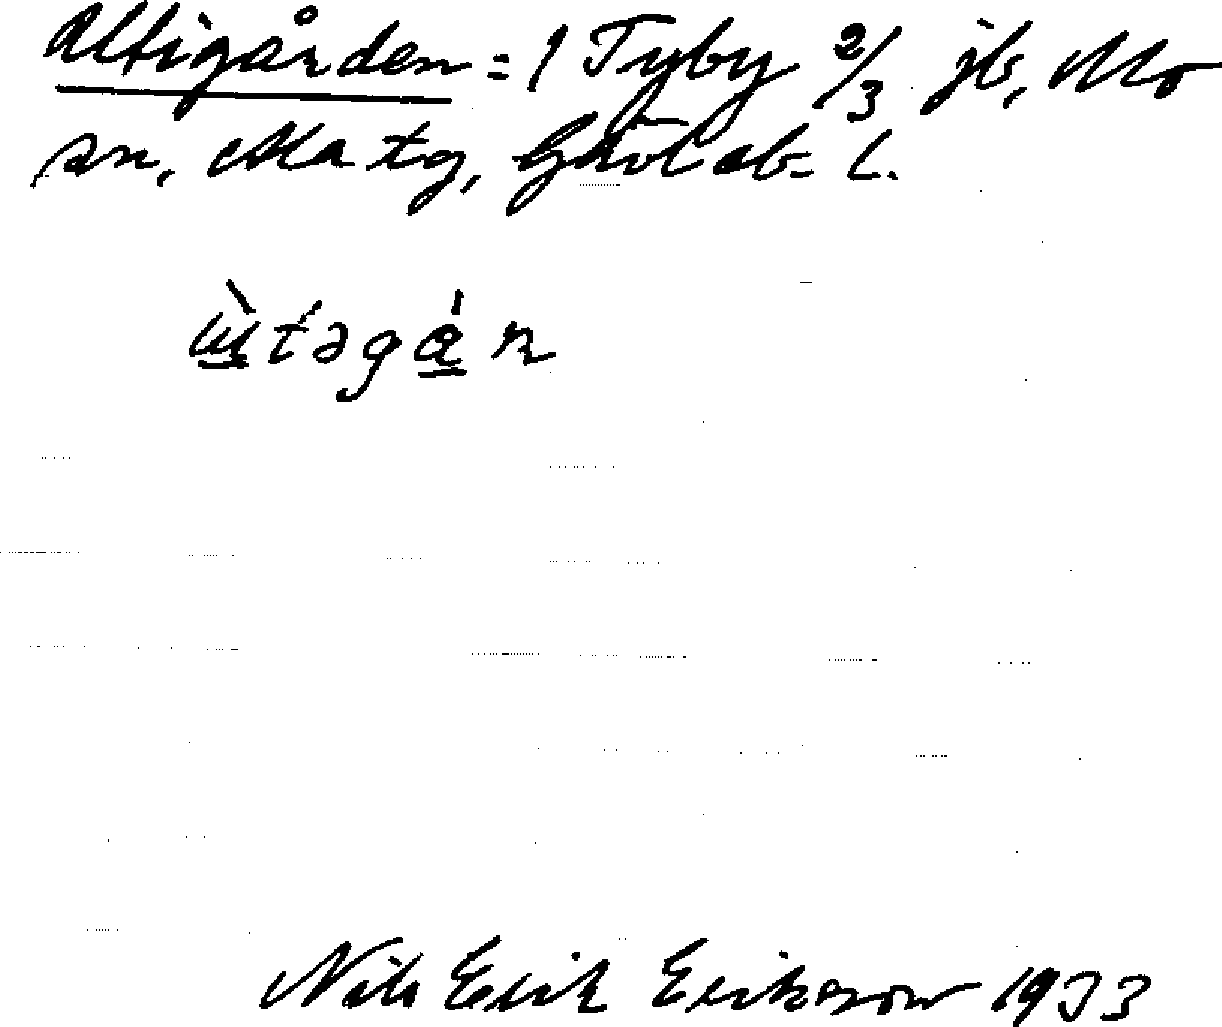 Altigården = 1 Tyby 2/3 jb, Mo
sn, Ma tg, Gävleb. L.
ɯ̀təgá̱n
Nils Erik Erikson 1933